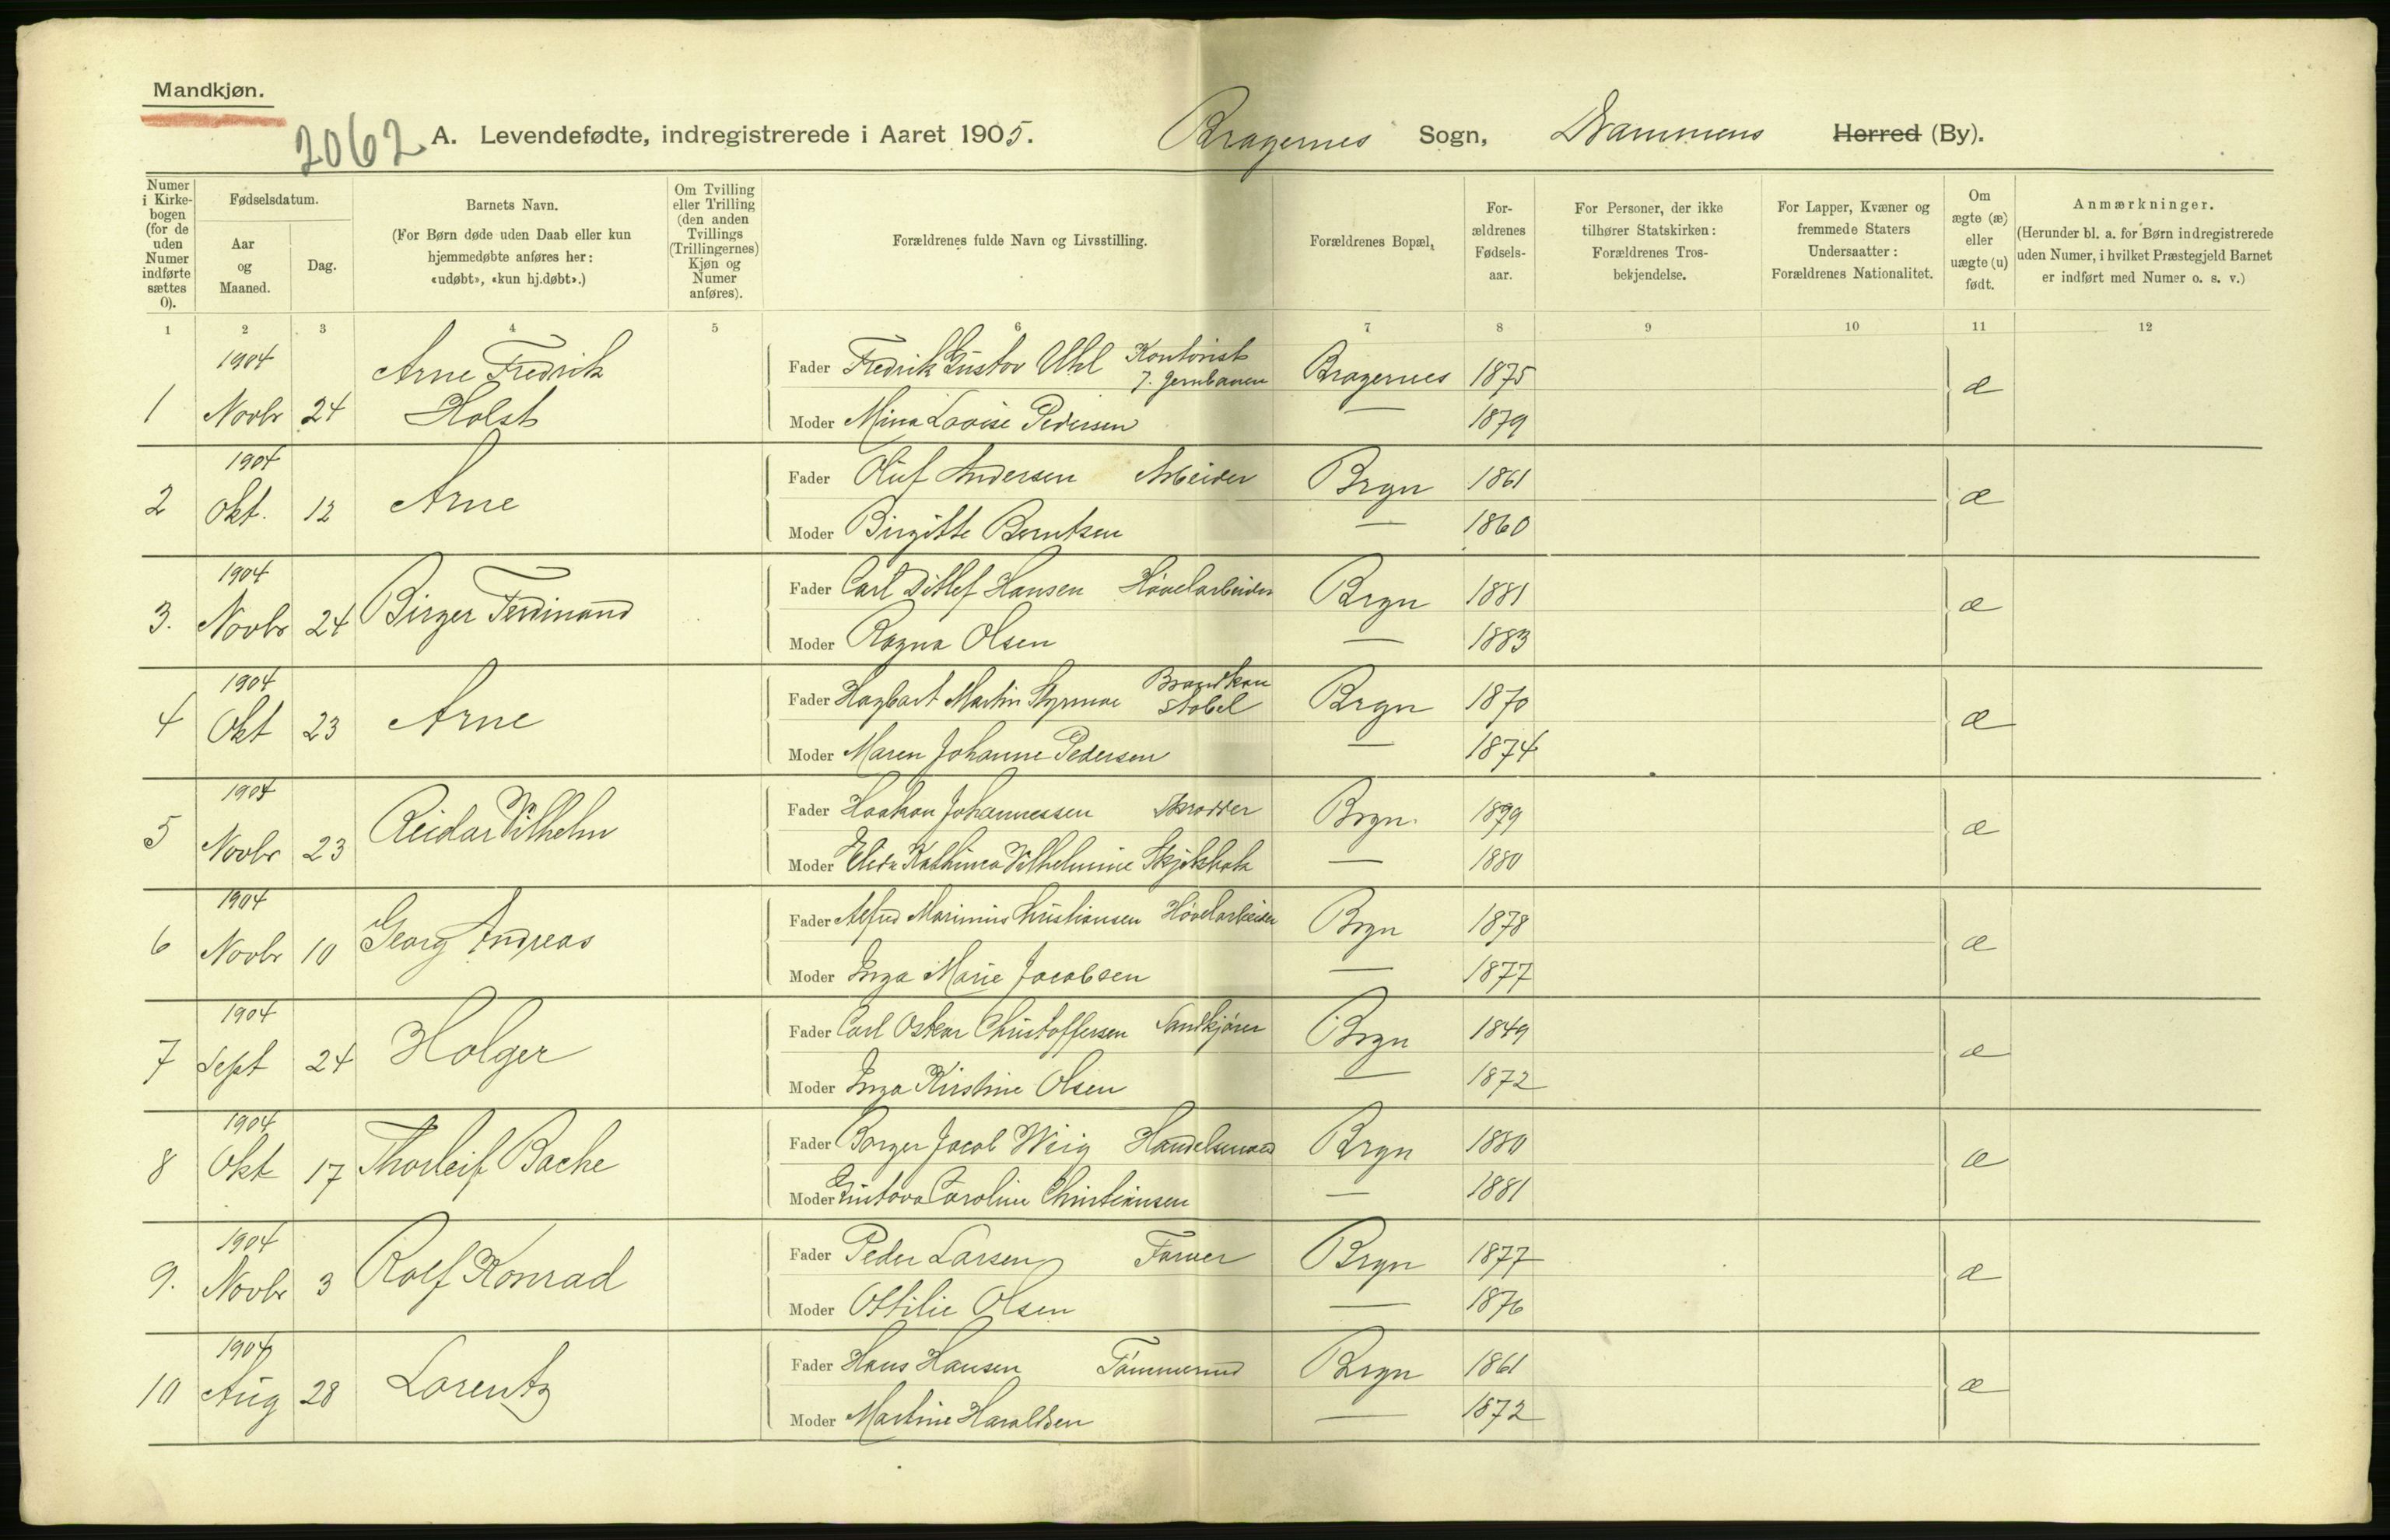 Mandkjøn.
2062 A. Levendefødte, indregistrerede i Aaret 1905. Bragernes Sogn, Drammens Herred (By).
Numer i Kirkebogen (for de uden Numer indførte sættes 0).
Fødselsdatum.
Aar og Maaned.
Dag.
Barnets Navn.
(For Børn døde uden Daab eller kun hjemmedøbte anføres her: «udøbt», «kun hj.døbt».)
Om Tvilling eller Trilling (den anden Tvillings (Trillingernes) Kjøn og Numer anføres).
Forældrenes fulde Navn og Livsstilling.
Forældrenes Bopæl.
Forældrenes Fødselsaar.
For Personer, der ikke tilhører Statskirken: Forældrenes Trosbekjendelse.
For Lapper, Kvæner og fremmede Staters Undersaatter: Forældrenes Nationalitet.
Om ægte (æ) eller uægte (u) født.
Anmærkninger.
(Herunder bl. a. for Børn indregistrerede uden Numer, i hvilket Præstegjeld Barnet er indført med Numer o. s. v.)
1 2 3 4 5 6 7 8 9 10 11 12
1 1904 Novbr 24 Arne Fredrik Holst Fader Fredrik Gustav Uhl Kontorist v. Jernbanen Bragernes 1875 æ
Moder Mina Lovise Pedersen — 1879
2 1904 Okt. 12 Arne Fader Oluf Andersen Arbeider Brgn 1861 æ
Moder Birgitte Berntsen — 1860
3. 1904 Novbr 24 Birger Ferdinand Fader Carl Ditlef Hansen Høvelarbeider Brgn 1881 æ
Moder Ragna Olsen — 1883
4 1904 Okt 23 Arne Fader Hagbart Martin Styrmoe Brandkonstabel Brgn 1870 æ
Moder Maren Johanne Pedersen — 1874
5 1904 Novbr 23 Reidar Vilhelm Fader Haakon Johannessen Skrædder Brgn. 1879 æ
Moder Elida Kathinca Vilhelmine — 1880
6 1904 Novbr 10 Georg Andreas Fader Alfred Marinius Christiansen Høvelarbeider Brgn 1878 æ
Moder Inga Marie Jacobsen — 1877
7 1904 Sept 24 Holger Fader Carl Oskar Christoffersen Sandkjører Brgn 1849 æ
Moder Inga Kirstine Olsen — 1872
8 1904 Okt 17 Thorleif Bache Fader Borger Jacob Wiig Handelsmand Brgn 1880 æ
Moder Gustava Caroline Christiansen — 1881
9. 1904 Novbr 3 Rolf Konrad Fader Peder Larsen Farver Brgn 1877 æ
Moder Ottilie Olsen — 1876
10 1904 Aug 28 Lorentz Fader Hans Hansen Tømmermd Brgn 1861 æ
Moder Martine Haraldsen — 1872